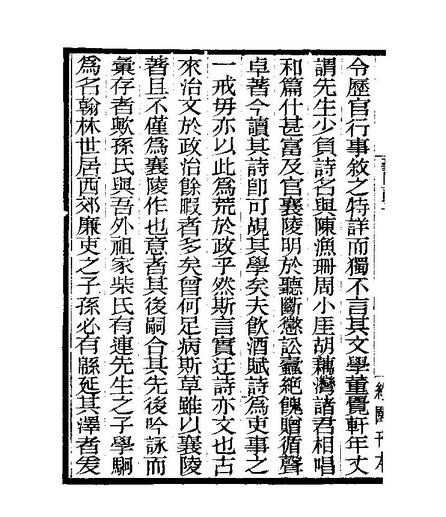 令歷官行事敘之特詳而獨不言其文學董覺軒年丈
謂先生少負詩名與陳漁珊周小厓胡藕灣諸君相唱
和篇什甚富及官襄陵明於聽斷懲訟蠹絕餽贈循聲
卓著今讀其詩卽可覘其學矣夫飲酒賦詩為吏事之
一戒毋亦以此為荒於政乎然斯言實迂詩亦文也古
來治文於政治餘暇者多矣曾何足病斯草雖以襄陵
著且不僅為襄陵作也意者其後嗣合其先後吟詠而
彙存者歟孫氏與吾外祖家柴氏有連先生之子學駉
為名翰林世居西郊廉吏之子孫必有緜延其澤者爰